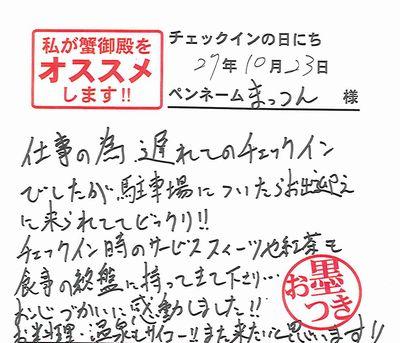 私が蟹御殿を
オススメ
します!!
チェックインの日にち
27年10月23日
ペンネーム まっつん 様
仕事の為 遅れてのチェックイン
でしたが、駐車場についたらお出迎え
に来られててビックリ!!
チェックイン時のサービススィーツや紅茶も
食事の終盤に持ってきて下さり…
お心づかいに感動しました!!
お料理・温泉もサイコー!!また来たいと思います!!
お墨つき